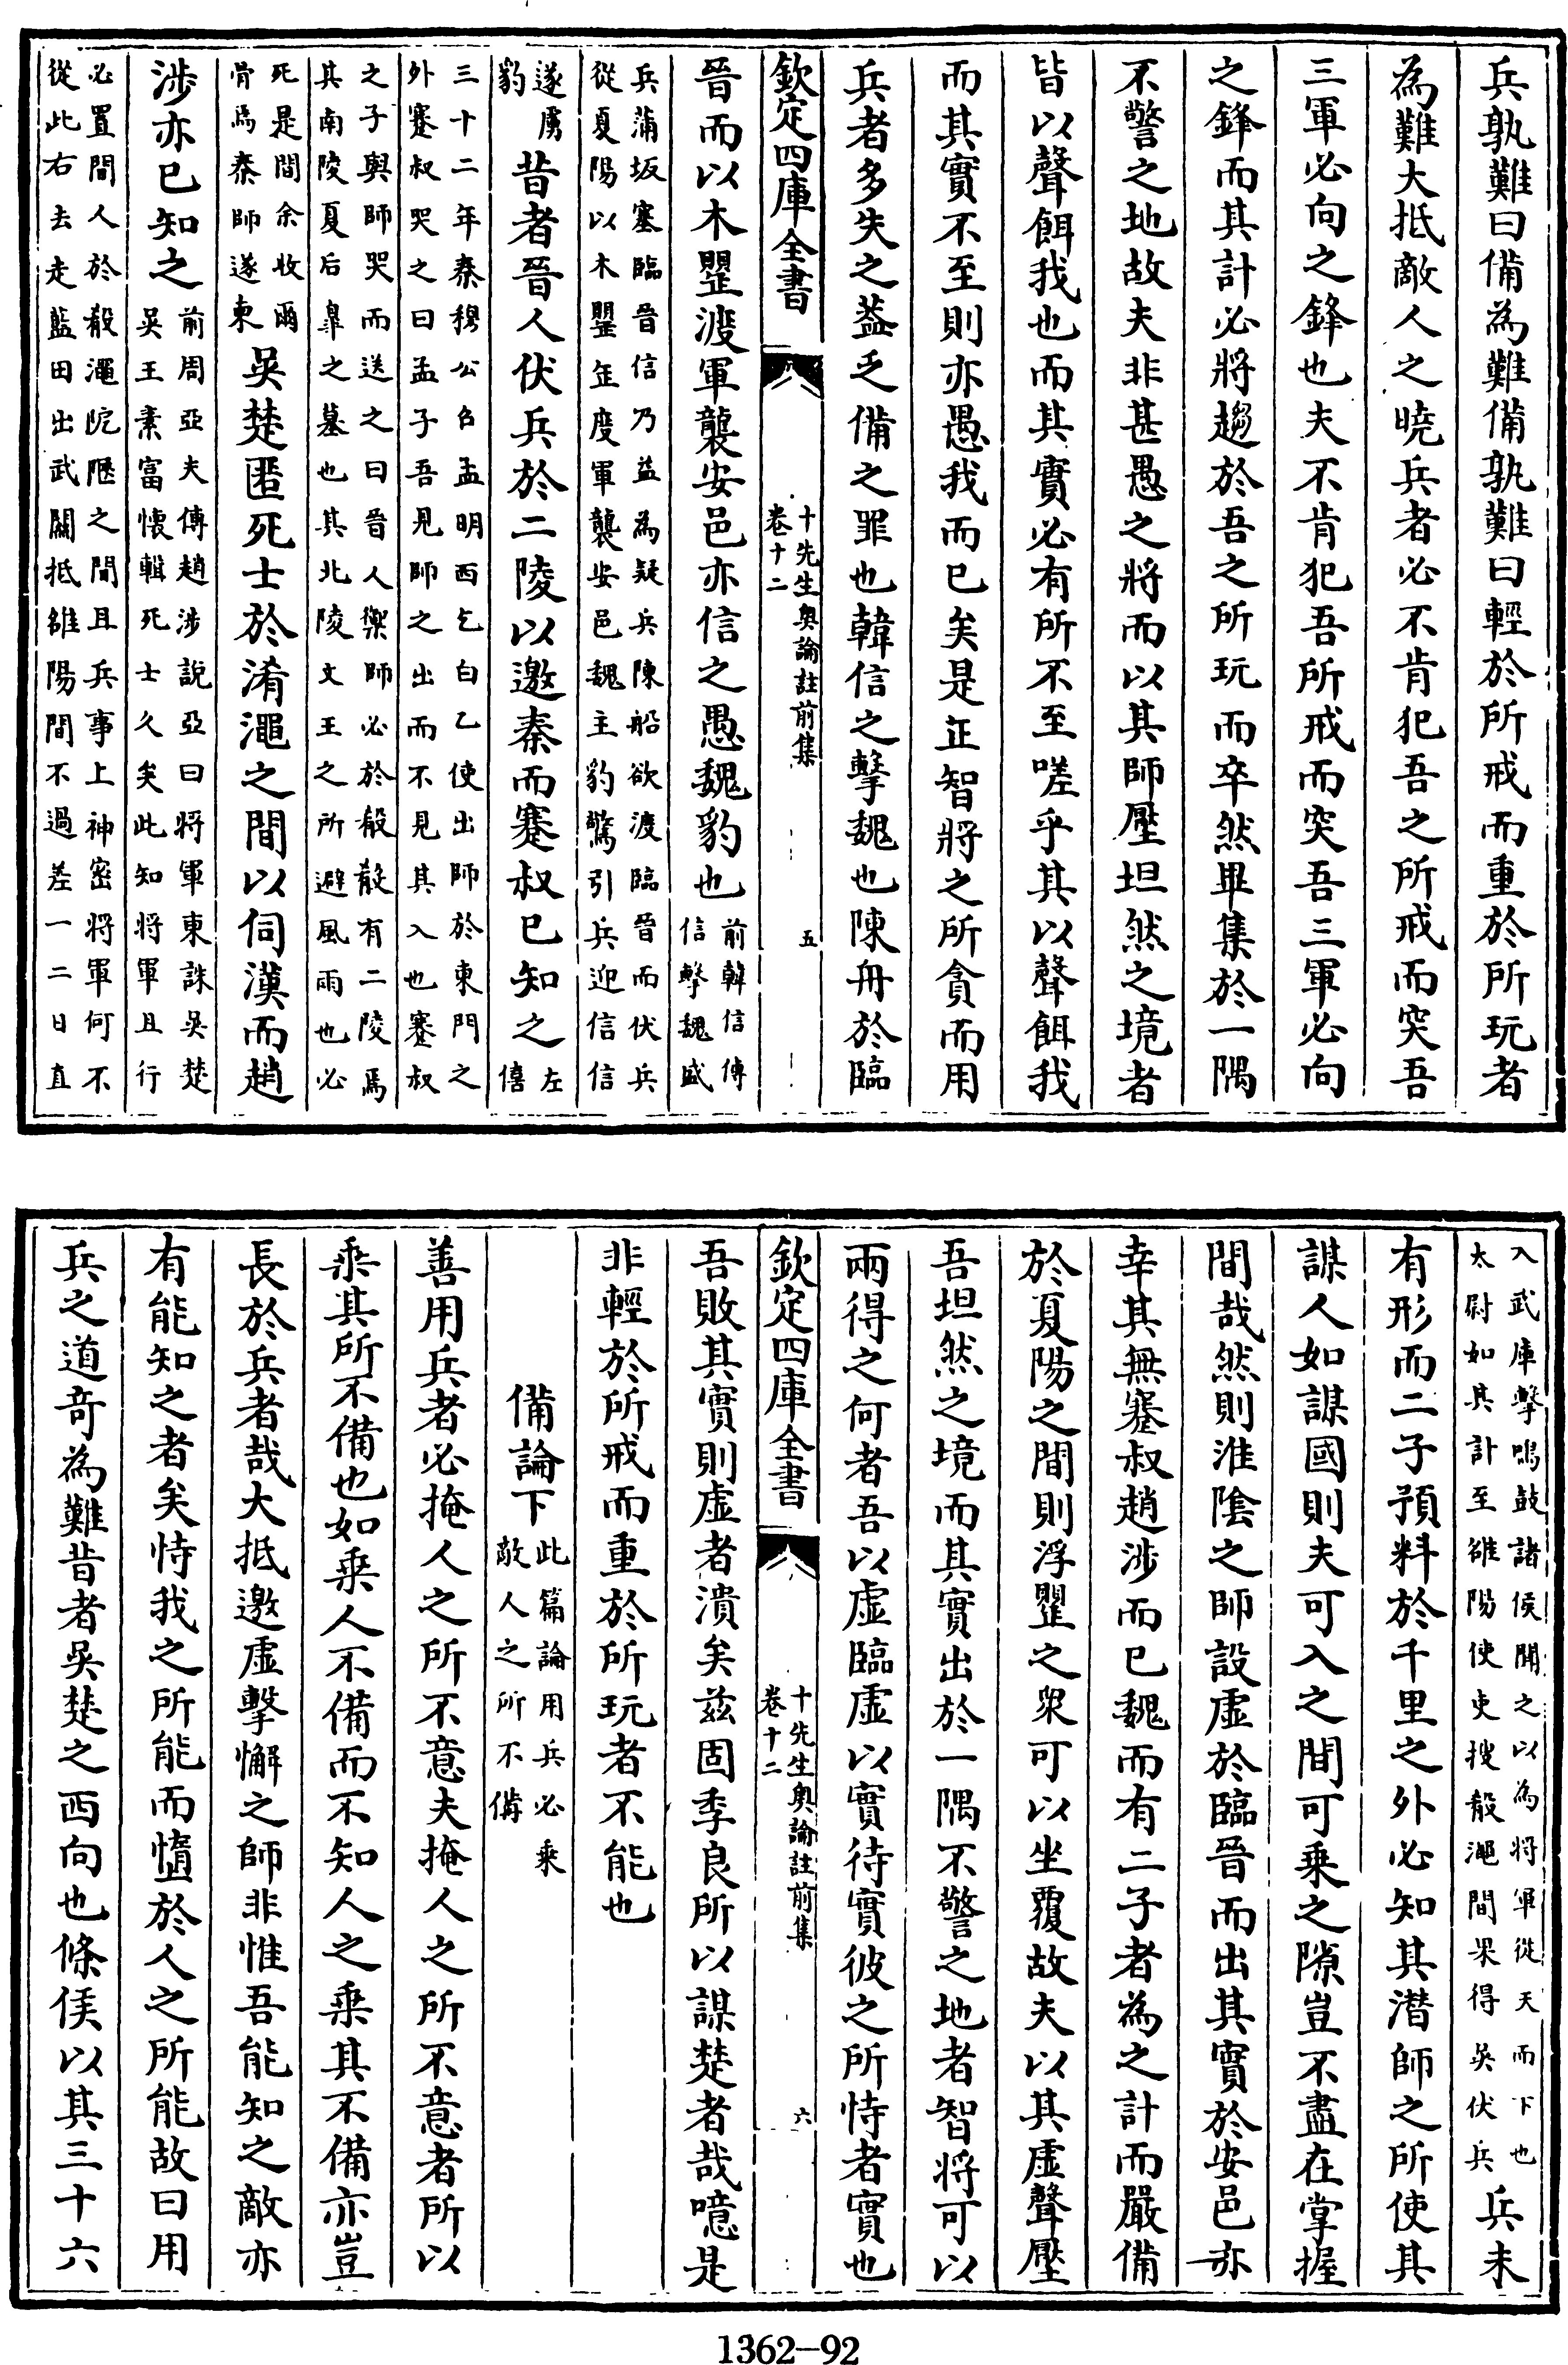 兵孰難曰備為難備孰難曰輕於所戒而重於所玩者
為難大抵敵人之曉兵者必不肯犯吾之所戒而突吾
三軍必向之鋒也夫不肯犯吾所戒而突吾三軍必向
之鋒而其計必將趨於吾之所玩而卒然畢集於一隅
不警之地故夫非甚愚之將而以其師壓坦然之境者
皆以聲餌我也而其實必有所不至嗟乎其以聲餌我
而其實不至則亦愚我而已矣是正智將之所貪而用
兵者多失之葢乏備之罪也韓信之擊魏也陳舟於臨
欽定四庫全書
十先生奧論註前集
卷十二
五
晉而以木罌渡軍襲安邑亦信之愚魏豹也前韓信傳
信擊魏盛
兵蒲坂塞臨晉信乃益為疑兵陳船欲渡臨晉而伏兵
從夏陽以木罌缻度軍襲安邑魏主豹驚引兵迎信信
遂虜
豹昔者晉人伏兵於二陵以邀秦而蹇叔已知之左
僖
三十二年秦穆公召孟明西乞白乙使出師於東門之
外蹇叔哭之曰孟子吾見師之出而不見其入也蹇叔
之子與師哭而送之曰晉人禦師必於殽殽有二陵焉
其南陵夏后臯之墓也其北陵文王之所避風雨也必
死是間余收爾
骨焉秦師遂東吳楚匿死士於淆澠之間以伺漢而趙
涉亦已知之前周亞夫傳趙涉說亞曰將軍東誅吳楚
吳王素富懷輯死士久矣此知將軍且行
必置間人於殽澠阨陿之間且兵事上神密將軍何不
從此右去走藍田出武關抵雒陽間不過差一二日直
入武庫擊鳴鼓諸侯聞之以為將軍從天而下也
太尉如其計至雒陽使吏搜殽澠間果得吳伏兵兵未
有形而二子預料於千里之外必知其潛師之所使其
謀人如謀國則夫可入之間可乘之隙豈不盡在掌握
間哉然則淮陰之師設虛於臨晉而出其實於安邑亦
幸其無蹇叔趙涉而已魏而有二子者為之計而嚴備
於夏陽之間則浮罌之眾可以坐覆故夫以其虛聲壓
吾坦然之境而其實出於一隅不警之地者智將可以
兩得之何者吾以虛臨虛以實待實彼之所恃者實也
欽定四庫全書
十先生奧論註前集
卷十二
六
吾敗其實則虛者潰矣茲固季良所以謀楚者哉噫是
非輕於所戒而重於所玩者不能也
備論下此篇論用兵必乘
敵人之所不備
善用兵者必掩人之所不意夫掩人之所不意者所以
乘其所不備也如乘人不備而不知人之乘其不備亦豈
長於兵者哉大抵邀虛擊懈之師非惟吾能知之敵亦
有能知之者矣恃我之所能而慉於人之所能故曰用
兵之道奇為難昔者吳楚之西向也條侯以其三十六
1362-92